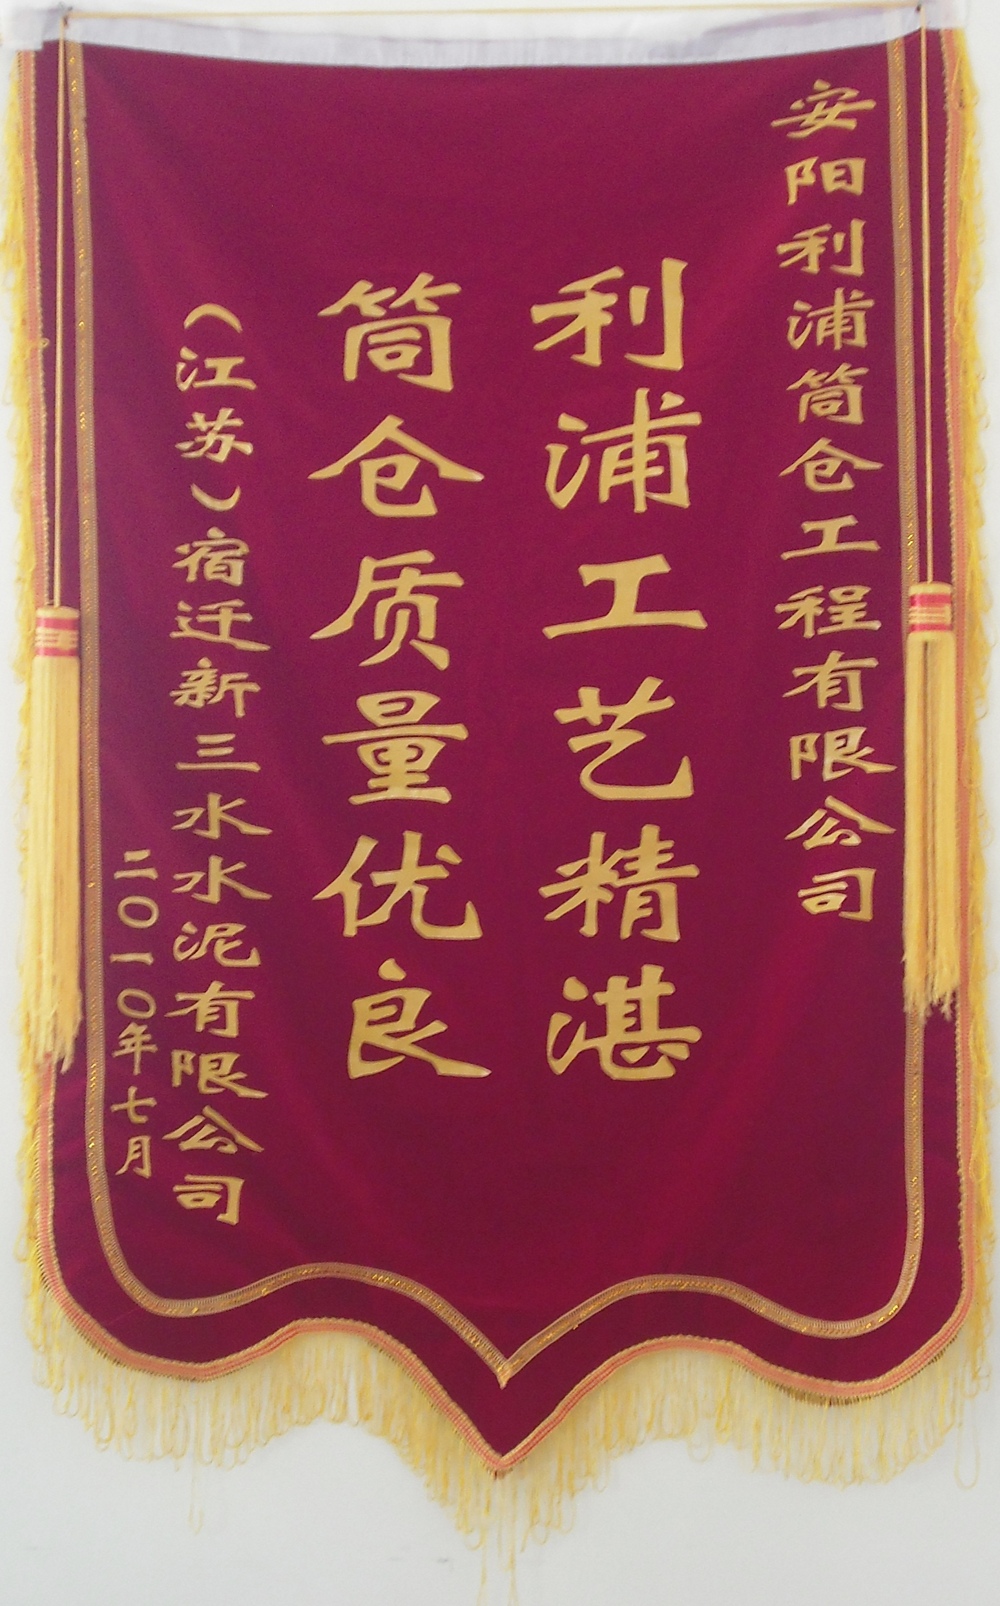 安阳利浦筒仓工程有限公司
利浦工艺精湛
筒仓质量优良
（江苏）宿迁新三水水泥有限公司
二〇一〇年七月